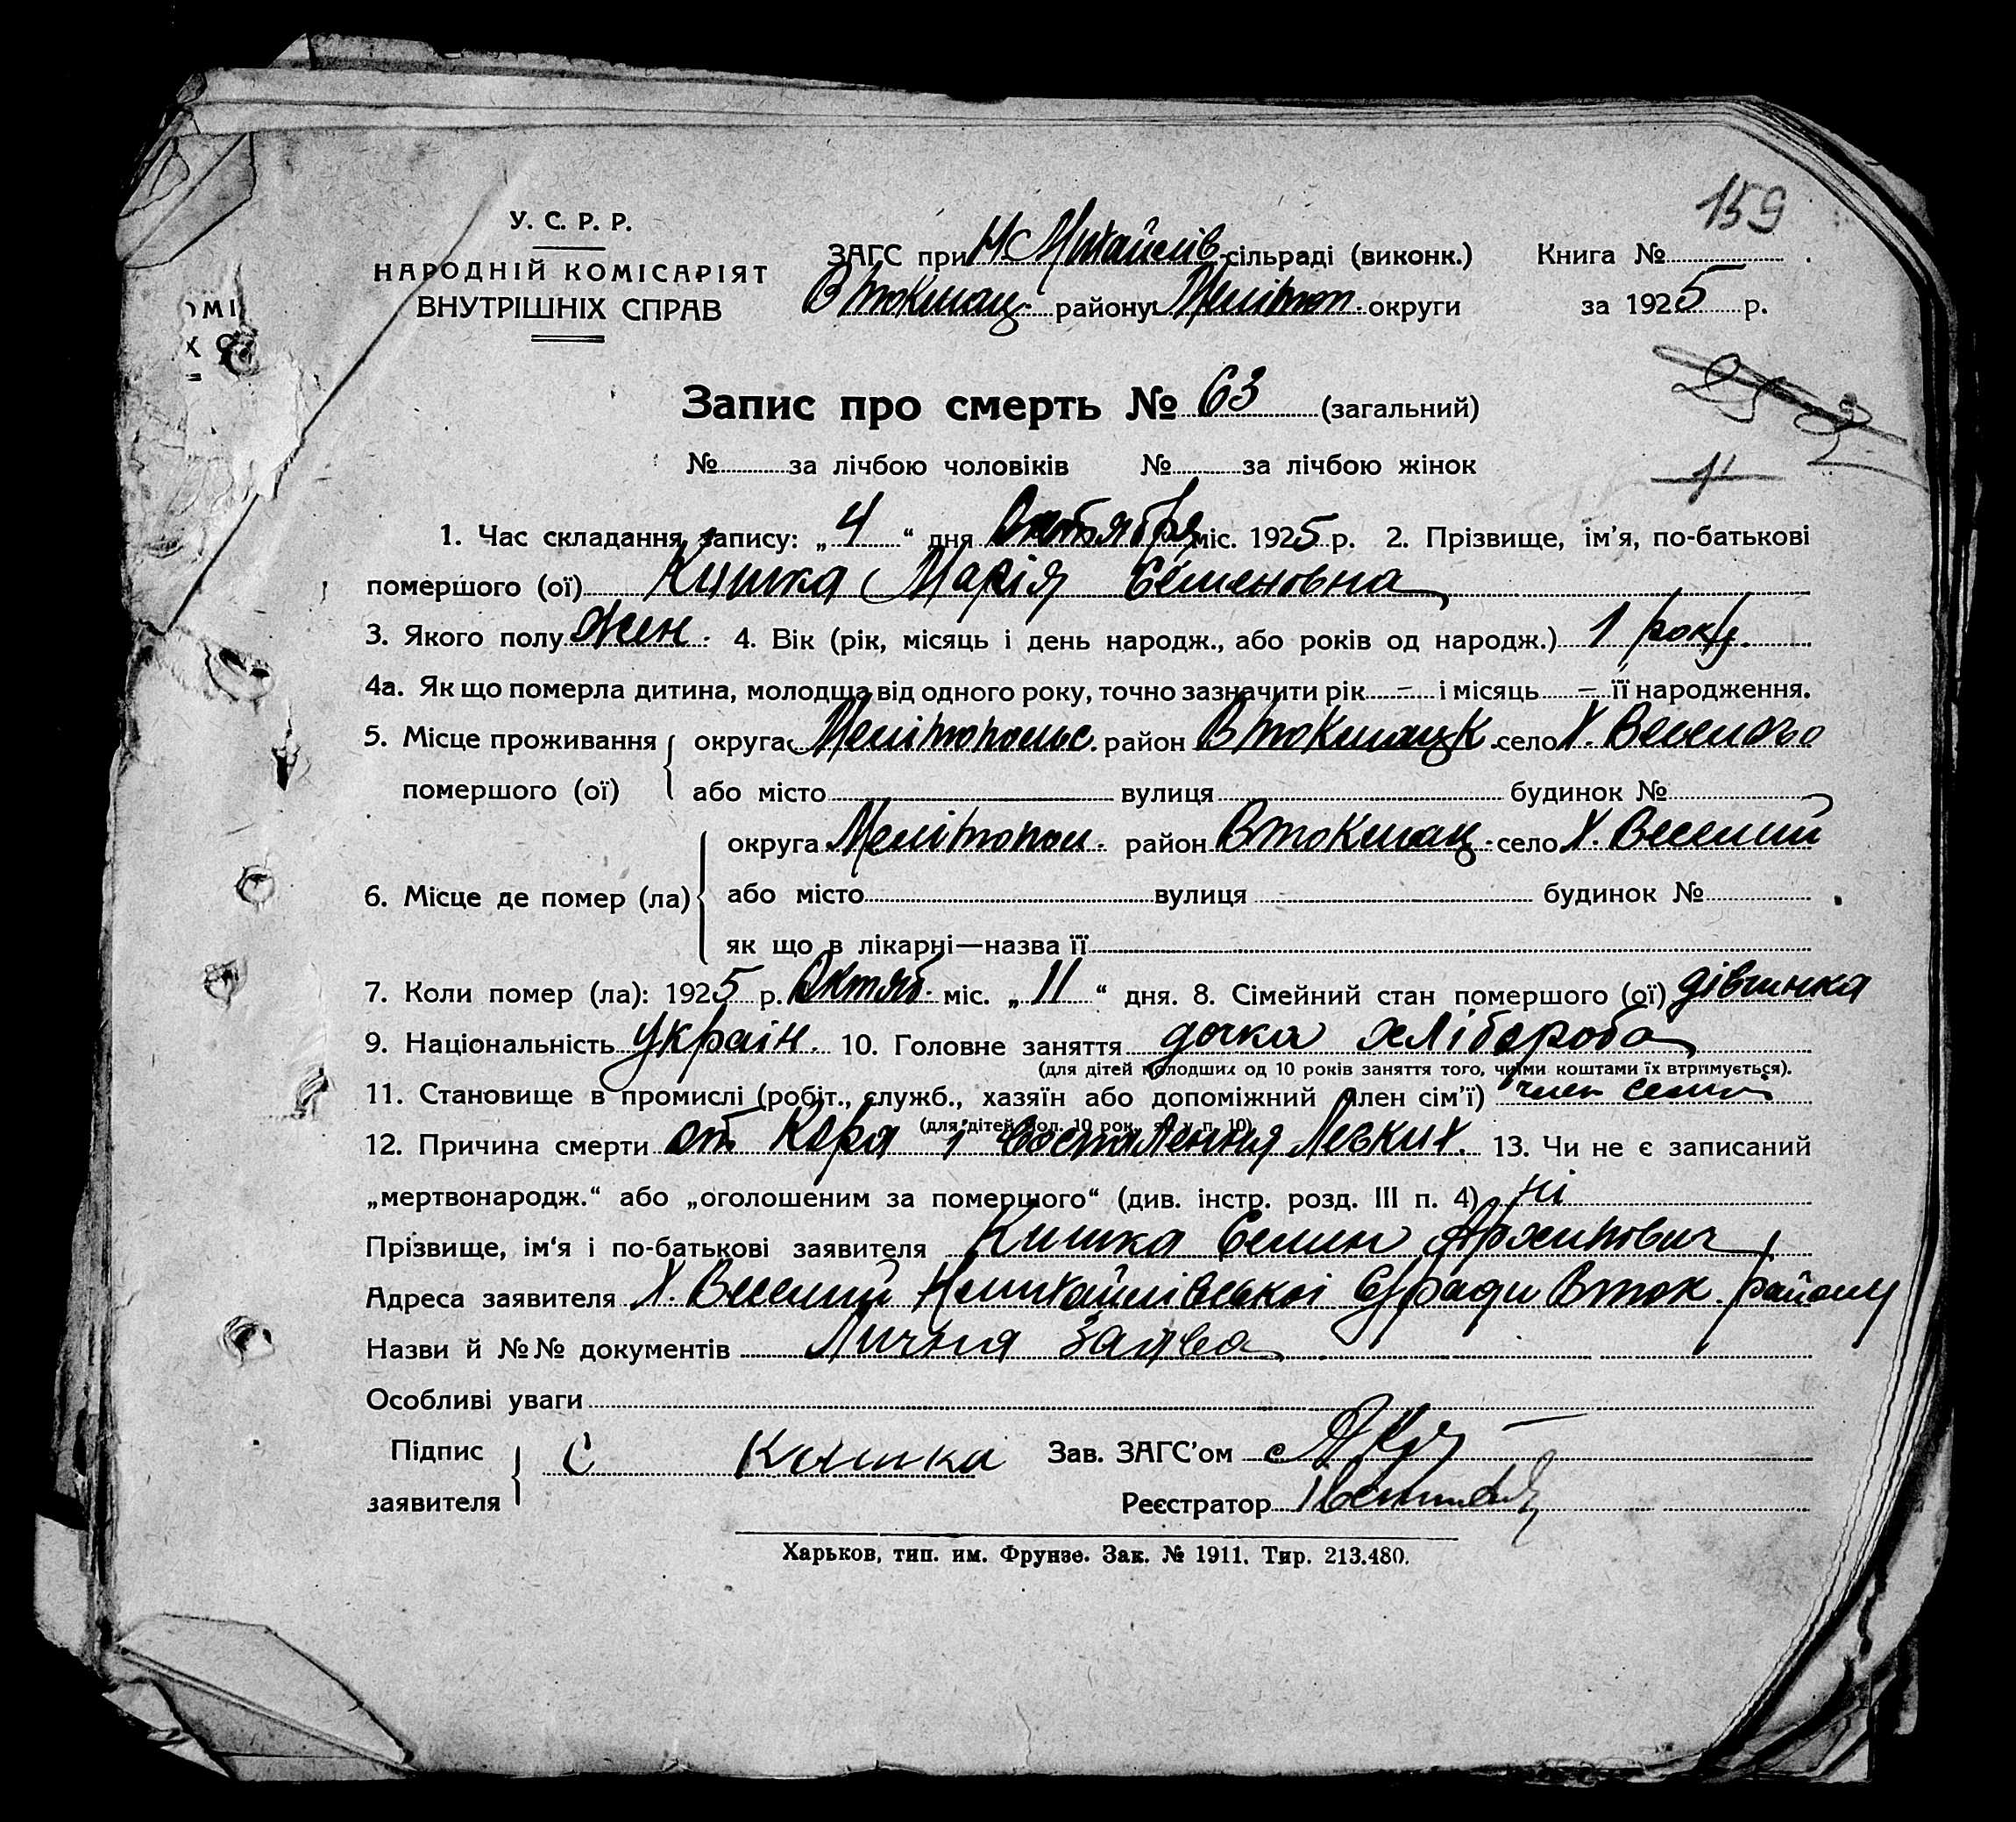 159
У. С. Р. Р.
НАРОДНІЙ КОМІСАРІЯТ
ВНУТРІШНІХ СПРАВ
ОМІ
Х С
ЗАГС при Н Михайлів сільраді (виконк.) Книга №
В Токмац. району Меліто́п. округи за 1925 р.
Запис про смерть № 63 (загальний)
№ за лічбою чоловіків № за лічбою жінок
1. Час складання запису: „4“ дня Октября міс. 1925 р. 2. Прізвище, ім’я, по-батькові
помершого (ої) Кишка Марія Семеновна
3. Якого полу жен. 4. Вік (рік, місяць і день народж., або років од народж.) 1 року.
4а. Як що померла дитина, молодша від одного року, точно зазначити рік – і місяць – її народження.
5. Місце проживання округа Мелітопольс. район В Токмацк. село Х. Веселого
помершого (ої) або місто вулиця будинок №
округа Мелітопол. район В Токмац. село Х. Веселий
6. Місце де помер (ла) або місто вулиця будинок №
як що в лікарні—назва її
7. Коли помер (ла): 1925 р. Октяб. міс. „11“ дня. 8. Сімейний стан помершого (ої) дівчинка
9. Національність Україн. 10. Головне заняття дочка хлібороба
(для дітей молодших од 10 років заняття того, чиїми коштами їх втримується).
11. Становище в промислі (робіт., служб., хазяїн або допоміжний член сім’ї) член семиї
(для дітей мол. 10 рок. як у п. 10)
12. Причина смерти от Коря і Воспаления Легких. 13. Чи не є записаний
„мертвонародж.“ або „оголошеним за помершого“ (див. інстр. розд. III п. 4) ні
Прізвище, ім‘я і по-батькові заявителя Кишка Семин Архипович
Адреса заявителя Х. Веселий Нмихайлівської С/ради Вток. району
Назви й №№ документів Лична Заява
Особливі уваги
Підпис С Кишка Зав. ЗАГС’ом
заявителя Реєстратор
Харьков, тип. им. Фрунзе. Зак. № 1911. Тир. 213.480.